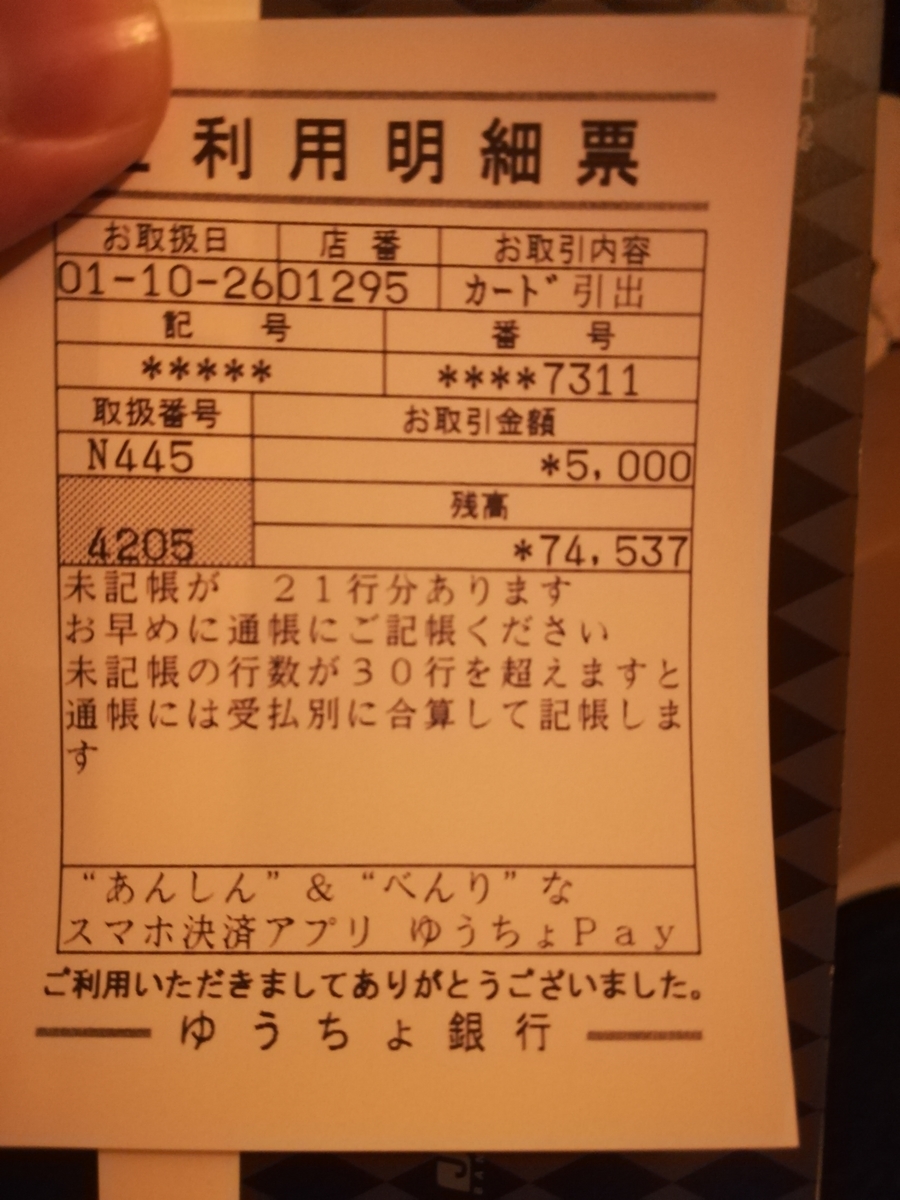 利用明細票
お取扱日 店番 お取引内容
01-10-26 01295 カード引出
記号 番号
***** ****7311
取扱番号 お取引金額
N445 *5,000
残高
4205 *74,537
未記帳が 21行分あります
お早めに通帳にご記帳ください
未記帳の行数が30行を超えますと
通帳には受払別に合算して記帳しま
す
“あんしん”&“べんり”な
スマホ決済アプリ ゆうちょPay
ご利用いただきましてありがとうございました。
ゆうちょ銀行